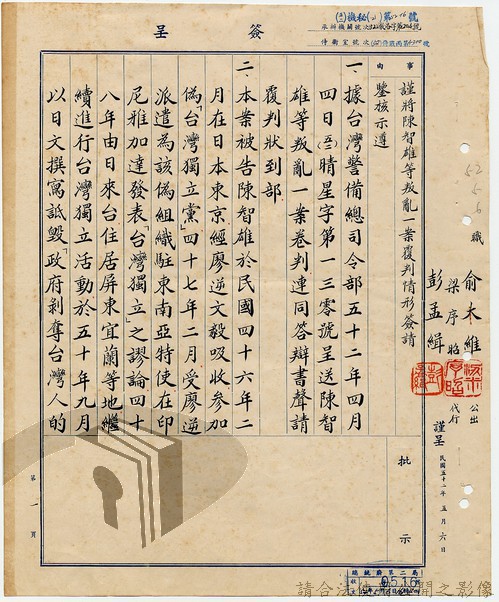 簽呈
事由
謹將陳智雄等叛亂一案覆判情形簽請
鑒核示遵
一、據台灣警備總司令部五十二年四月
四日晴星字第一三零號呈送陳智
雄等叛亂一案卷判連同答辯書聲請
覆判狀到部
二、本案被告陳智雄於民國四十六年二
月在日本東京經廖逆文毅吸收參加
偽「台灣獨立黨」四十七年二月受廖逆
派遣為該偽組織駐東南亞特使在印
尼雅加達發表「台灣獨立」之謬論四十
八年由日來台住居屏東宜蘭等地繼
續進行台灣獨立活動於五十年九月
以日文撰寫詆毀「政府剝奪台灣人的
批示
52 5 6
職
俞大維
梁序昭
彭孟緝
公出
代行
謹呈
民國五十二年五月六日
第一頁
總統府第二局
請合法使用公開之影像